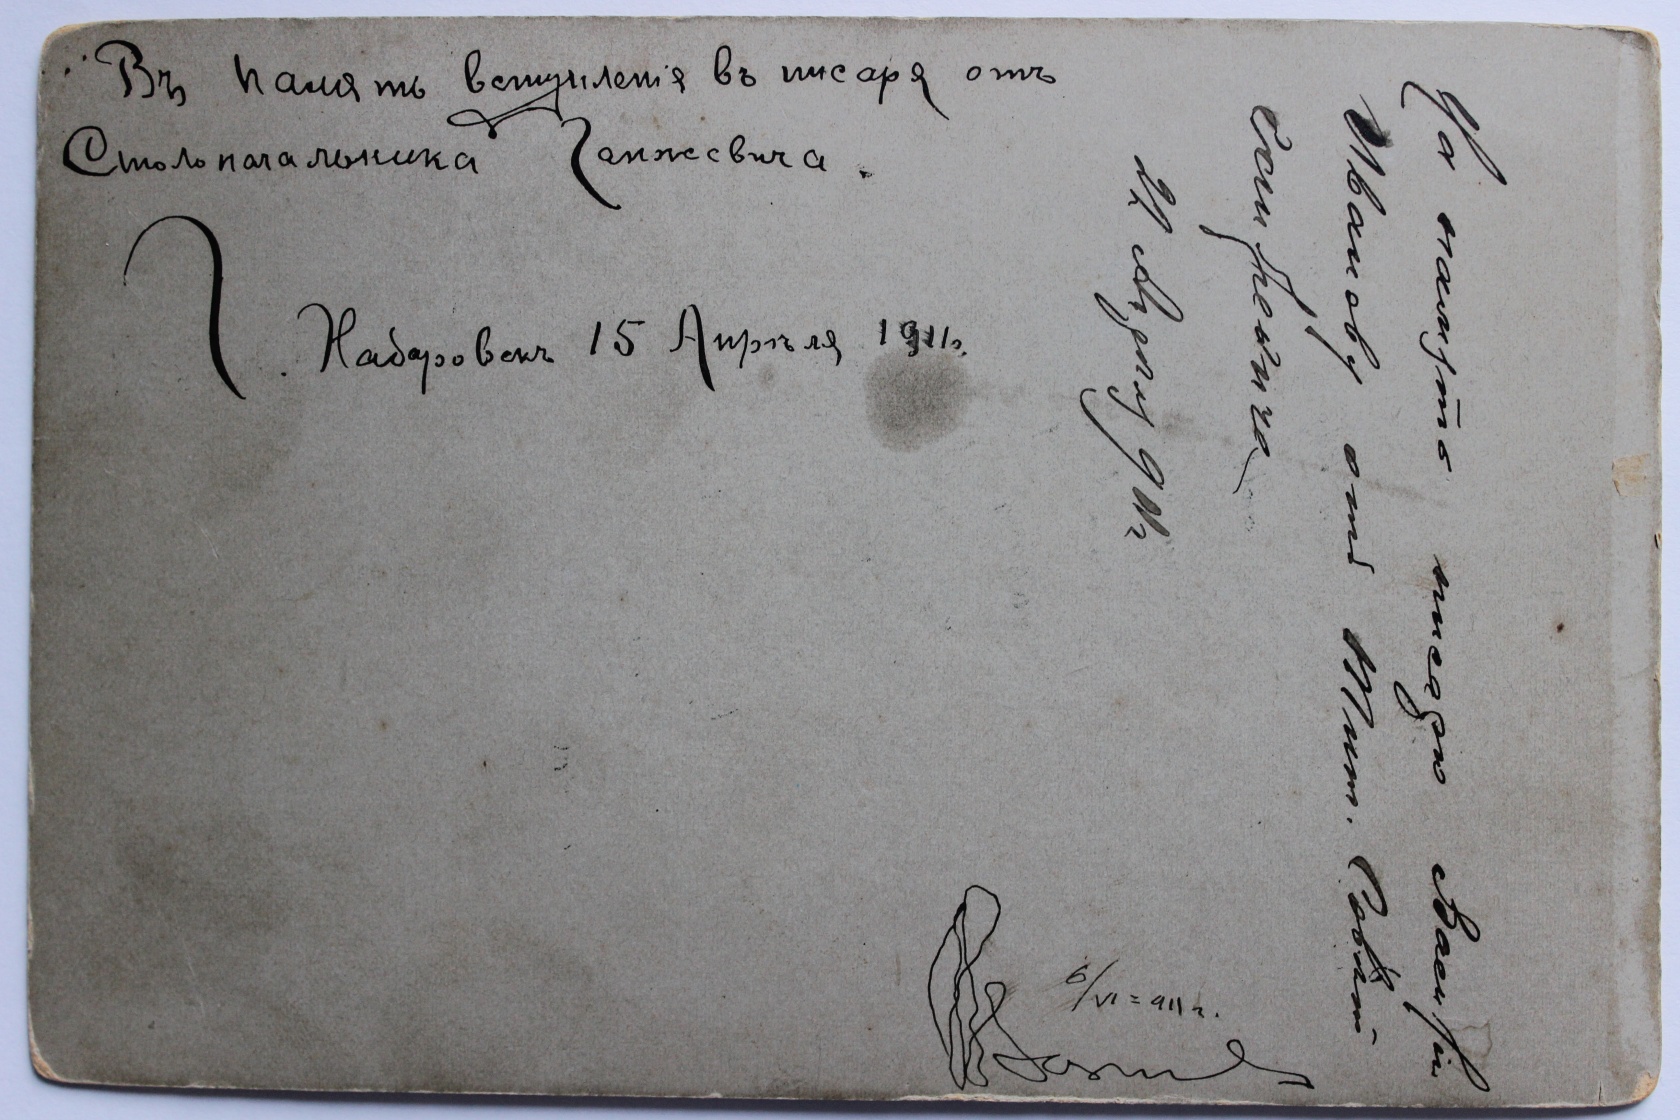 Въ память вступленія въ писаря отъ
Столоначальника Ганжевича.
Хабаровскъ 15 Апрѣля 1911г.
На память писарю Василiю
Иванову отъ Тит. Совѣт
21 Августа 911 г
6/VI = 911 г.